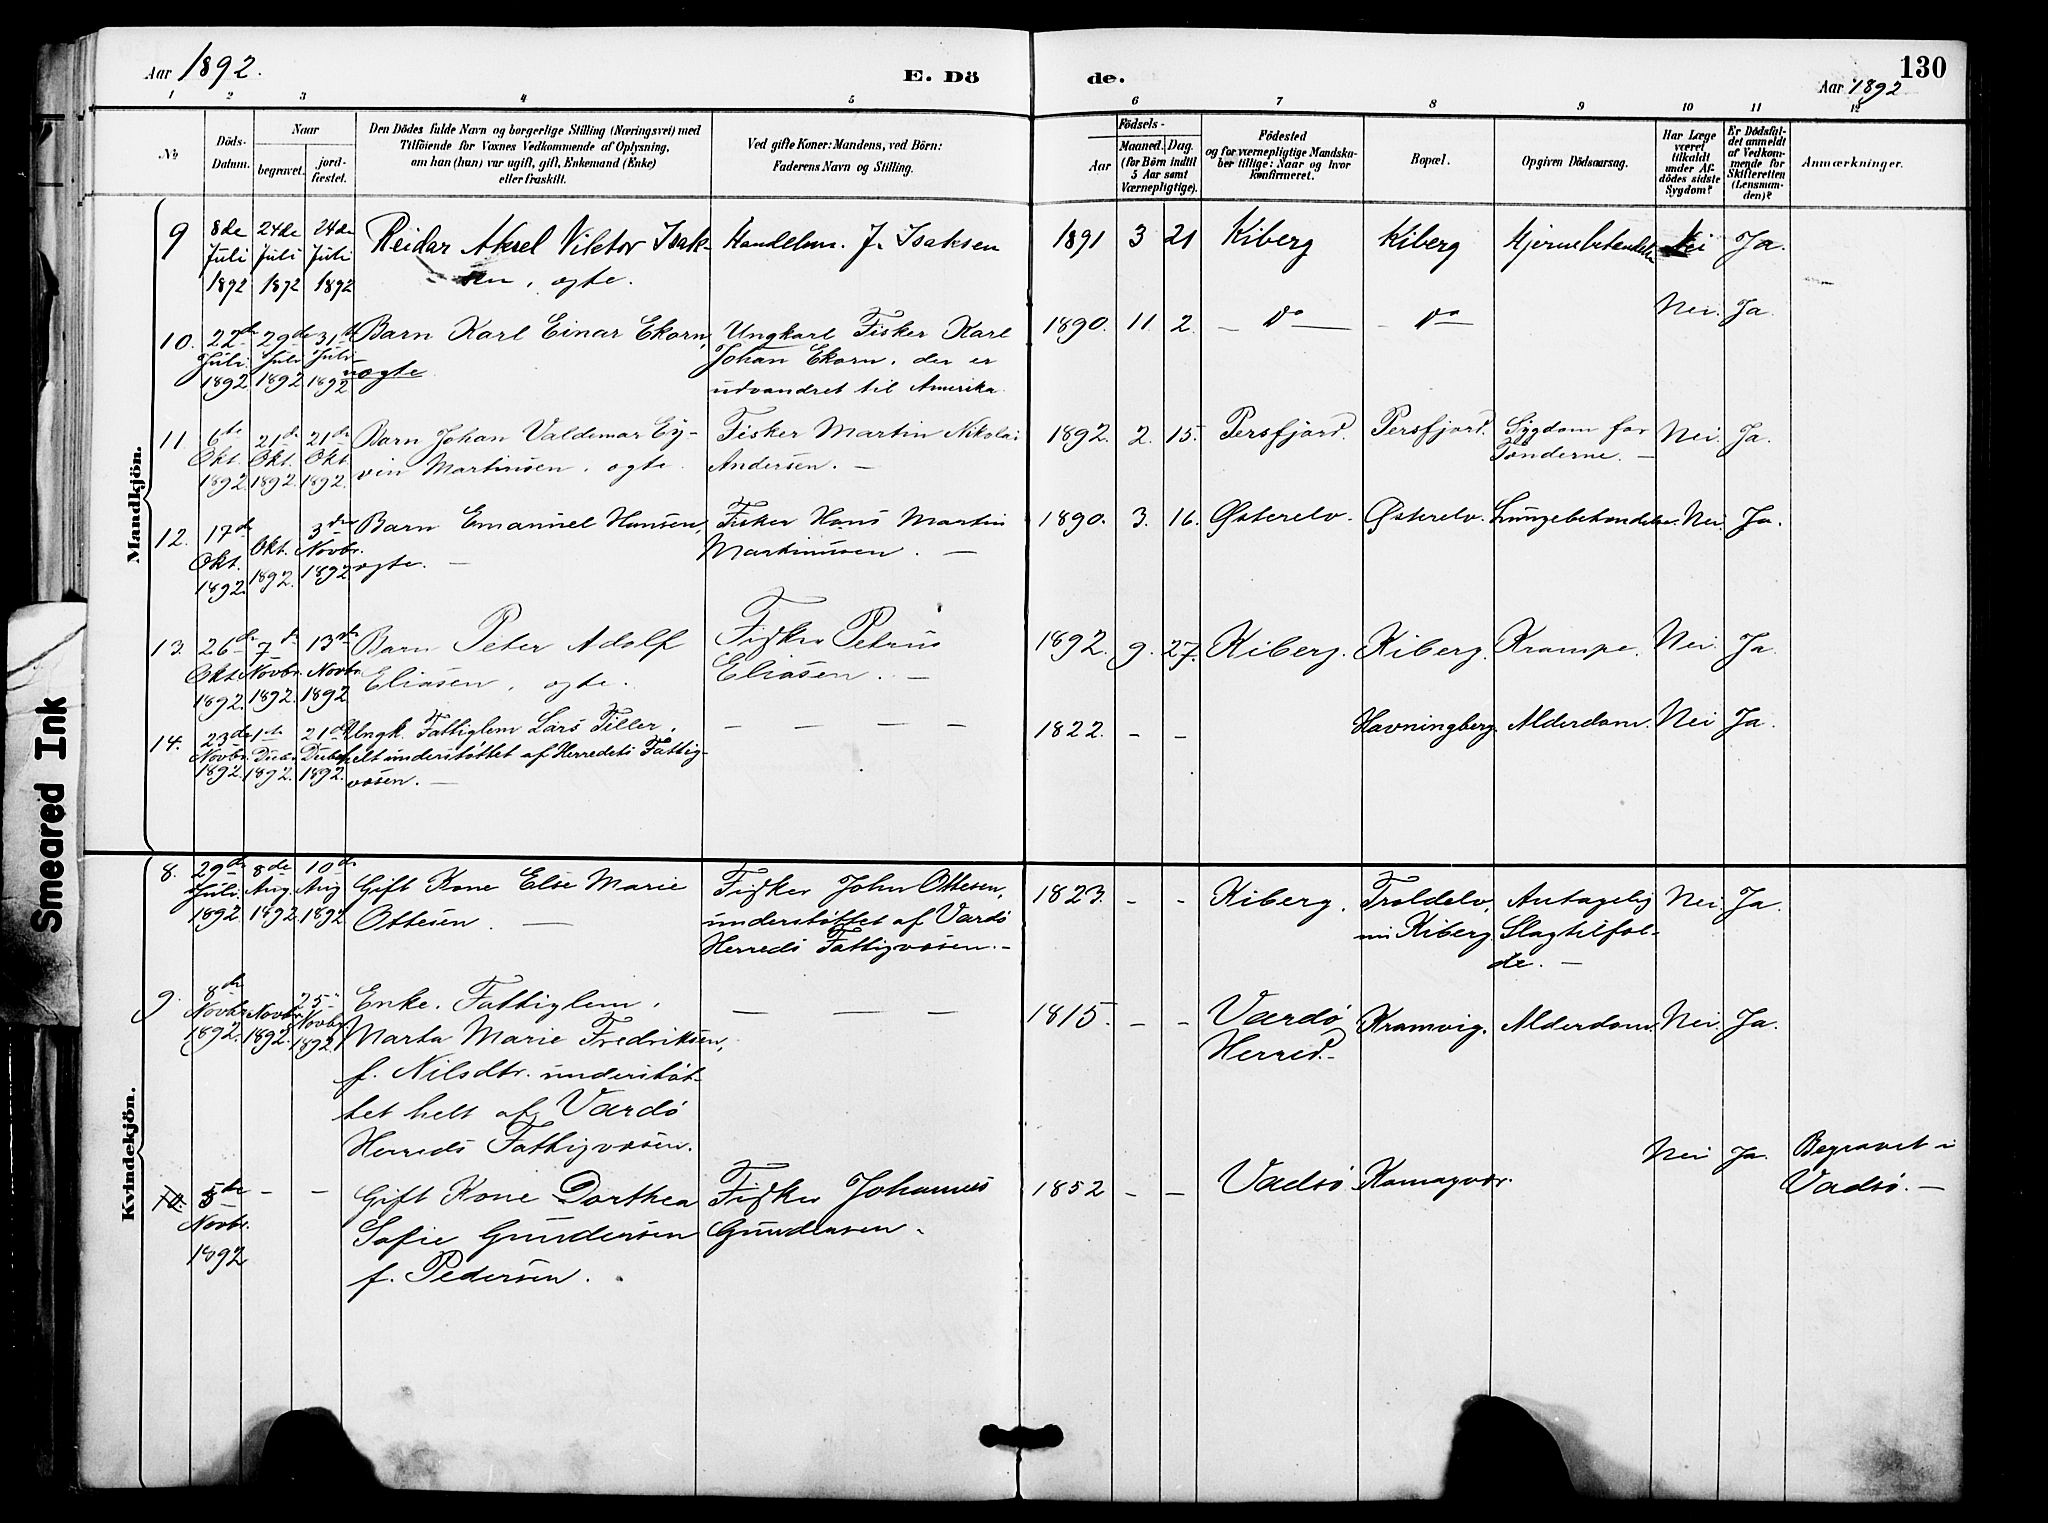 Aar 1892.
E. Dö
de.
130
Aar 1892
1 2 3 4 5 6 7 8 9 10 11 12
No
Döds-
Datum.
Naar
begravet.
jord-
fæstet.
Den Dödes fulde Navn og borgerlige Stilling (Næringsvei) med
Tilföiende for Voxnes Vedkommende af Oplysning,
om han (hun) var ugift, gift, Enkemand (Enke)
eller fraskilt.
Ved gifte Koner: Mandens, ved Börn:
Faderens Navn og Stilling.
Födsels-
Aar
Maaned. Dag.
(for Börn indtil
5 Aar samt
Værnepligtige).
Födested
og for værnepligtige Mandska-
ber tillige: Naar og hvor
konfirmeret.
Bopæl.
Opgiven Dödsaarsag.
Har Læge
været
tilkaldt
under Af-
dödes sidste
Sygdom?
Er Dödsfal-
det anmeldt
af Vedkom-
mende for
Skifteretten
(Lensman-
den)?
Anmærkninger.
Mandkjön.
9
8de
Juli
1892
24de
Juli
1892
24de
Juli
1892
Reidar Aksel Viktor Isak-
sen, ægte.
Handelsm. J. Isaksen
1891 3 21 Kiberg Kiberg Hjernebetændelse Nei Ja.
10.
22de
Juli
1892
29de
Juli
1892
31te
Juli
1892
Barn Karl Einar Ekorn,
uægte
Ungkarl Fisker Karl
Johan Ekorn, der er
udvandret til Amerika
1890. 11. 2. – do – – do – Nei. Ja.
11.
6te
Okt.
1892.
21de
Okt.
1892.
21de
Okt.
1892.
Barn Johan Valdemar Ey-
vin Martinsen, ægte.
Fisker Martin Nikolai
Andersen. –
1892. 2. 15. Persfjord. Persfjord. Sygdom for
Tænderne. – Nei Ja.
12.
17de
Okt.
1892.
Okt.
1892.
3die
Novbr.
1892
Barn Emanuel Hansen,
ægte. –
Fisker Hans Martin
Martinusen. –
1890. 3. 16. Østerelv. Østerelv. Lungebetændelse. Nei. Ja.
13.
26de
Okt.
1892.
7de
Novbr.
1892.
13de
Novbr.
1892
Barn Peter Adolf
Eliasen, ægte.
Fisker Petrus
Eliasen. –
1892. 9. 27. Kiberg. Kiberg. Krampe. Nei. Ja.
14.
23de
Novbr.
1892.
1ste
Decbr.
1892.
21de
Decbr.
1892.
Ungk. Fattiglem Lars Tiller,
helt understøttet af Herredets Fattig-
væsen. –
– – – –
1822. – – Havningberg. Alderdom. Nei Ja.
Kvindekjön.
8.
29de
Juli.
1892
8de
Aug.
1892.
10de
Aug
1892
Gift Kone Else Marie
Ottesen. –
Fisker John Ottesen,
understøttet af Vardø
Herreds Fattigvæsen. –
1823. – – Kiberg. Troldelv,
Kiberg. Antagelig
Slagtilfæl-
de. – Nei. Ja.
9.
8de
Novbr.
1892.
Novbr.
1892.
25
Novbr.
1892.
Enke. Fattiglem,
Marta Marie Fredriksen,
f. Nilsdtr. understøt-
tet helt af Vardø
Herreds Fattigvæsen.
– – –
1815. – – Vardø
Herred. – Kramvig. Alderdom. Nei. Ja.
10.
5de
Novbr.
1892
– –
Gift Kone Dorthea
Sofie Gundersen
f. Pedersen.
Fisker Johannes
Gundersen.
1852 – – Vadsø Komagvær. Nei Ja. Begravet i
Vadsø. –
Smeared Ink